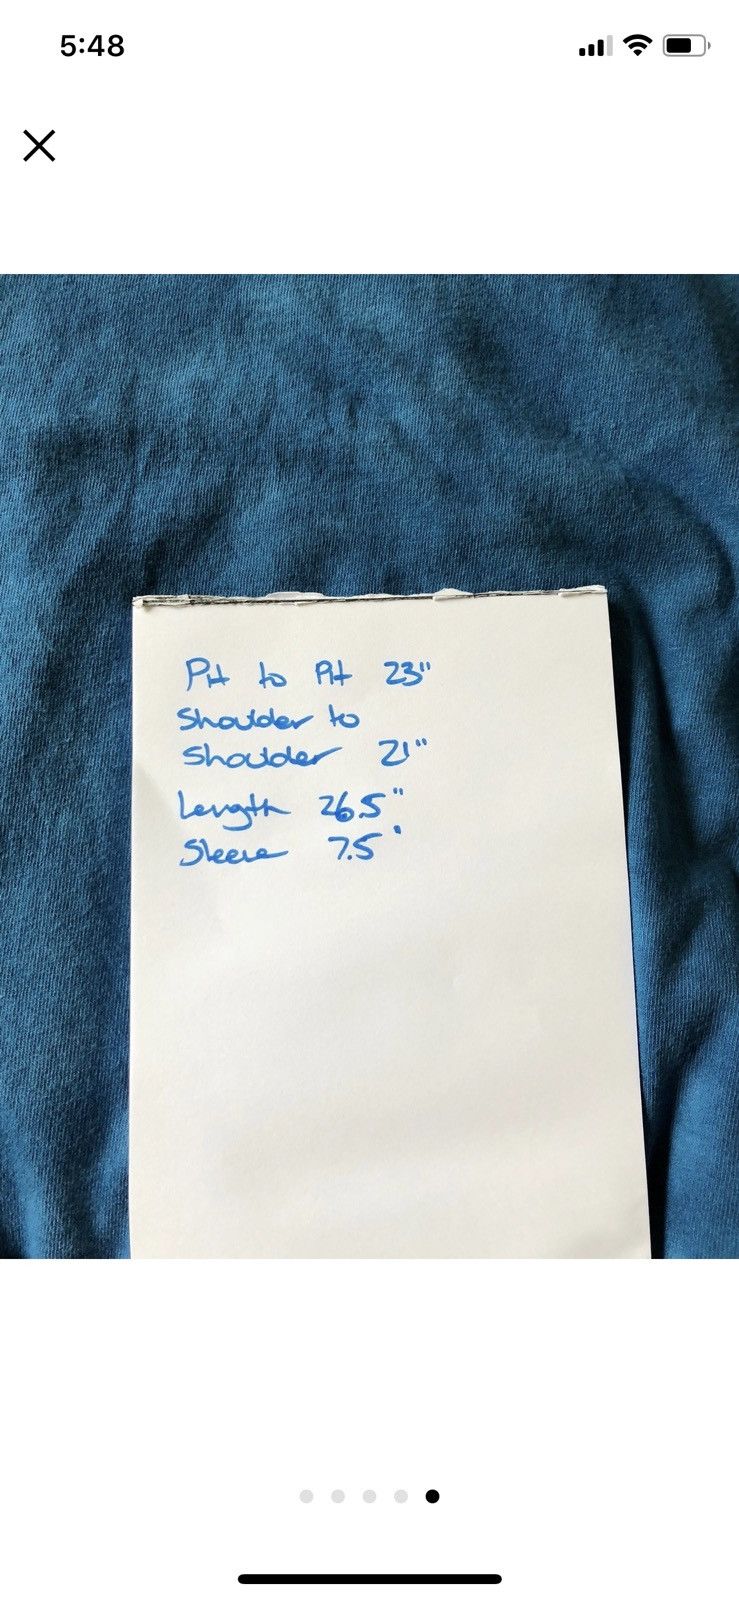 5:48
Pit to Pit 23"
Shoulder to
Shoulder 21"
Length 26.5"
Sleeve 7.5"